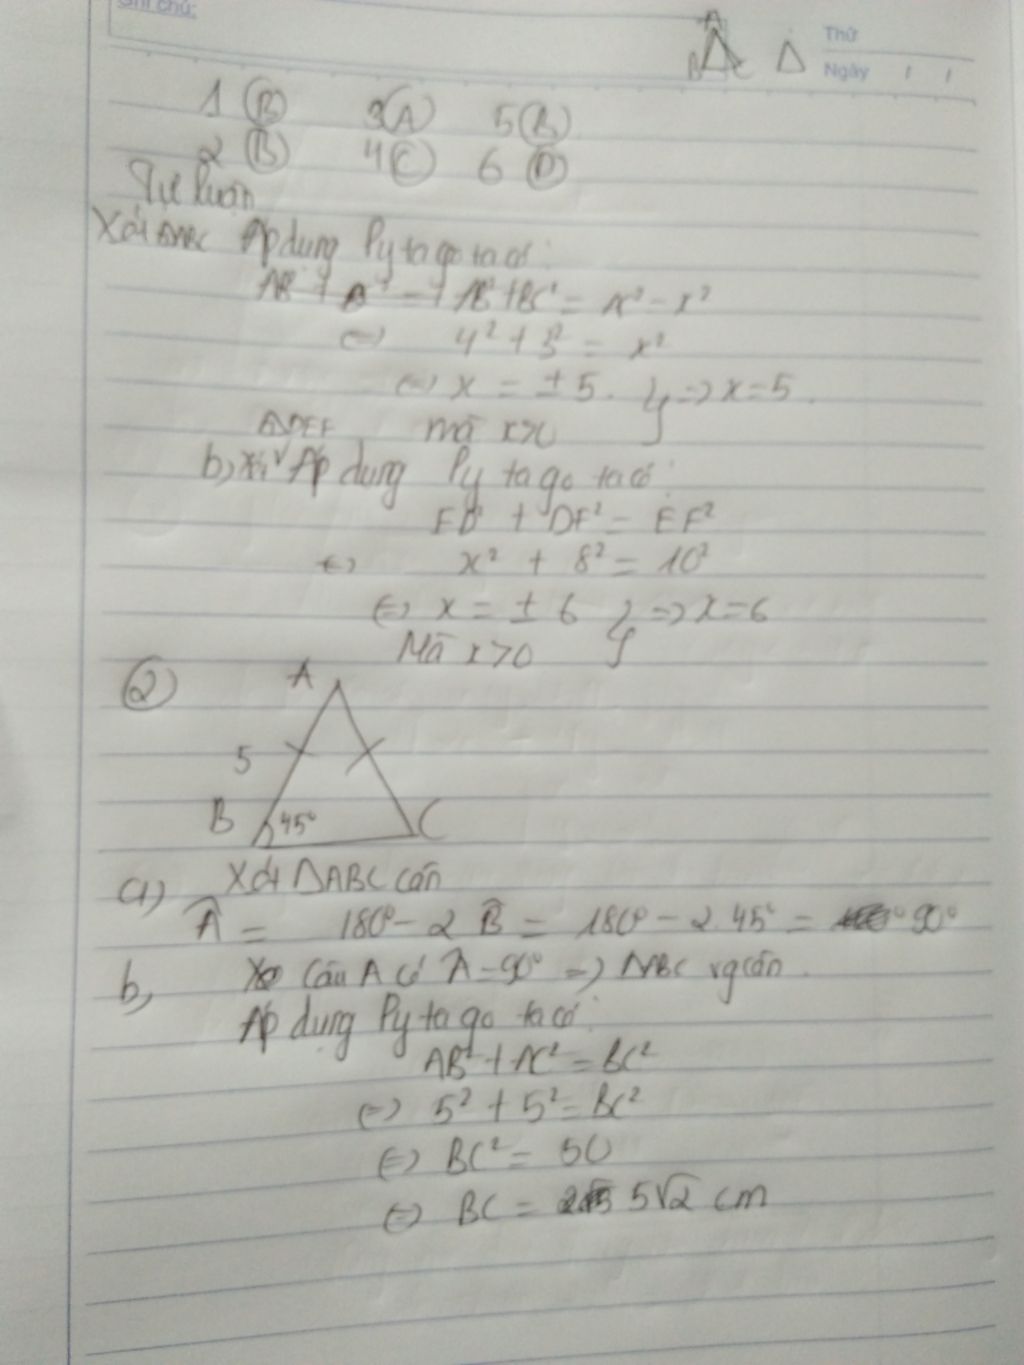 Ghi chú:
A
B C
Thứ
Ngày / /
1 (B) 3 (A) 5 (B)
2 (B) 4 (C) 6 (D)
Tự luận
Xét ΔABC Áp dụng Pytago ta có:
AB²+BC² = x²
⇔ 4² + 3² = x²
⇔ x = ±5. } => x=5.
mà x>0
ΔDEF
b, Xét Áp dụng Pytago ta có:
ED² + DF² = EF²
⇔ x² + 8² = 10²
⇔ x = ±6 } => x=6
Mà x>0
(2)
A
5
B 45° C
a) Xét ΔABC cân
Â = 180° - 2 B̂ = 180° - 2.45° = 90°
b, Câu A có Â = 90° => ΔABC vg cân.
Áp dụng Pytago ta có:
AB² + AC² = BC²
⇔ 5² + 5² = BC²
⇔ BC² = 50
⇔ BC = 5√2 cm